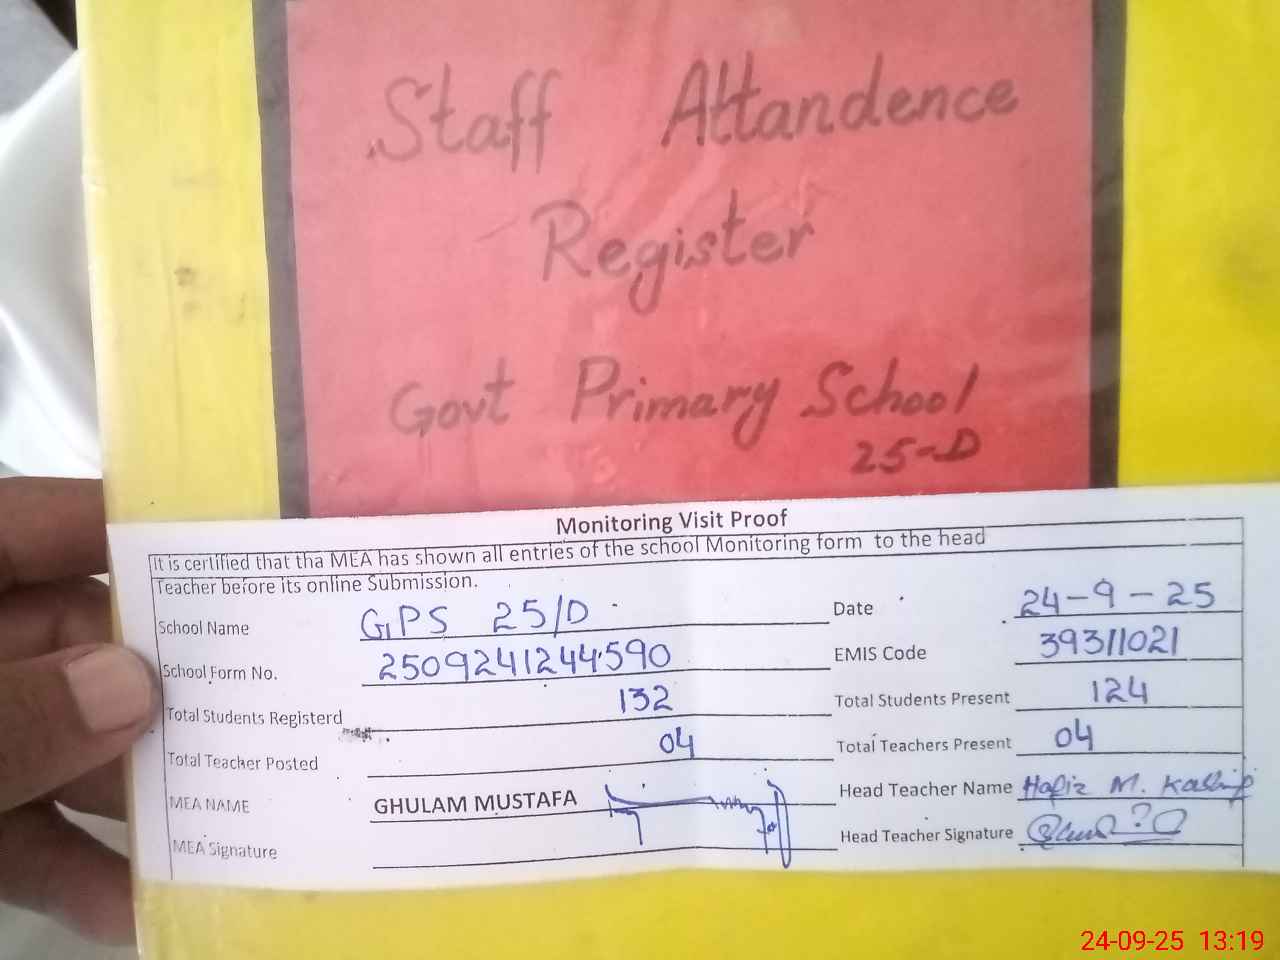 Staff Attandence
Register
Govt Primary School
25-D
Monitoring Visit Proof
It is certified that tha MEA has shown all entries of the school Monitoring form to the head
Teacher before its online Submission.
School Name GPS 25/D Date 24-9-25
School Form No. 2509241244590 EMIS Code 39311021
Total Students Registerd 132 Total Students Present 124
Total Teacher Posted 04 Total Teachers Present 04
MEA NAME GHULAM MUSTAFA Head Teacher Name Hafiz M. Kashif
MEA Signature Head Teacher Signature
24-09-25 13:19